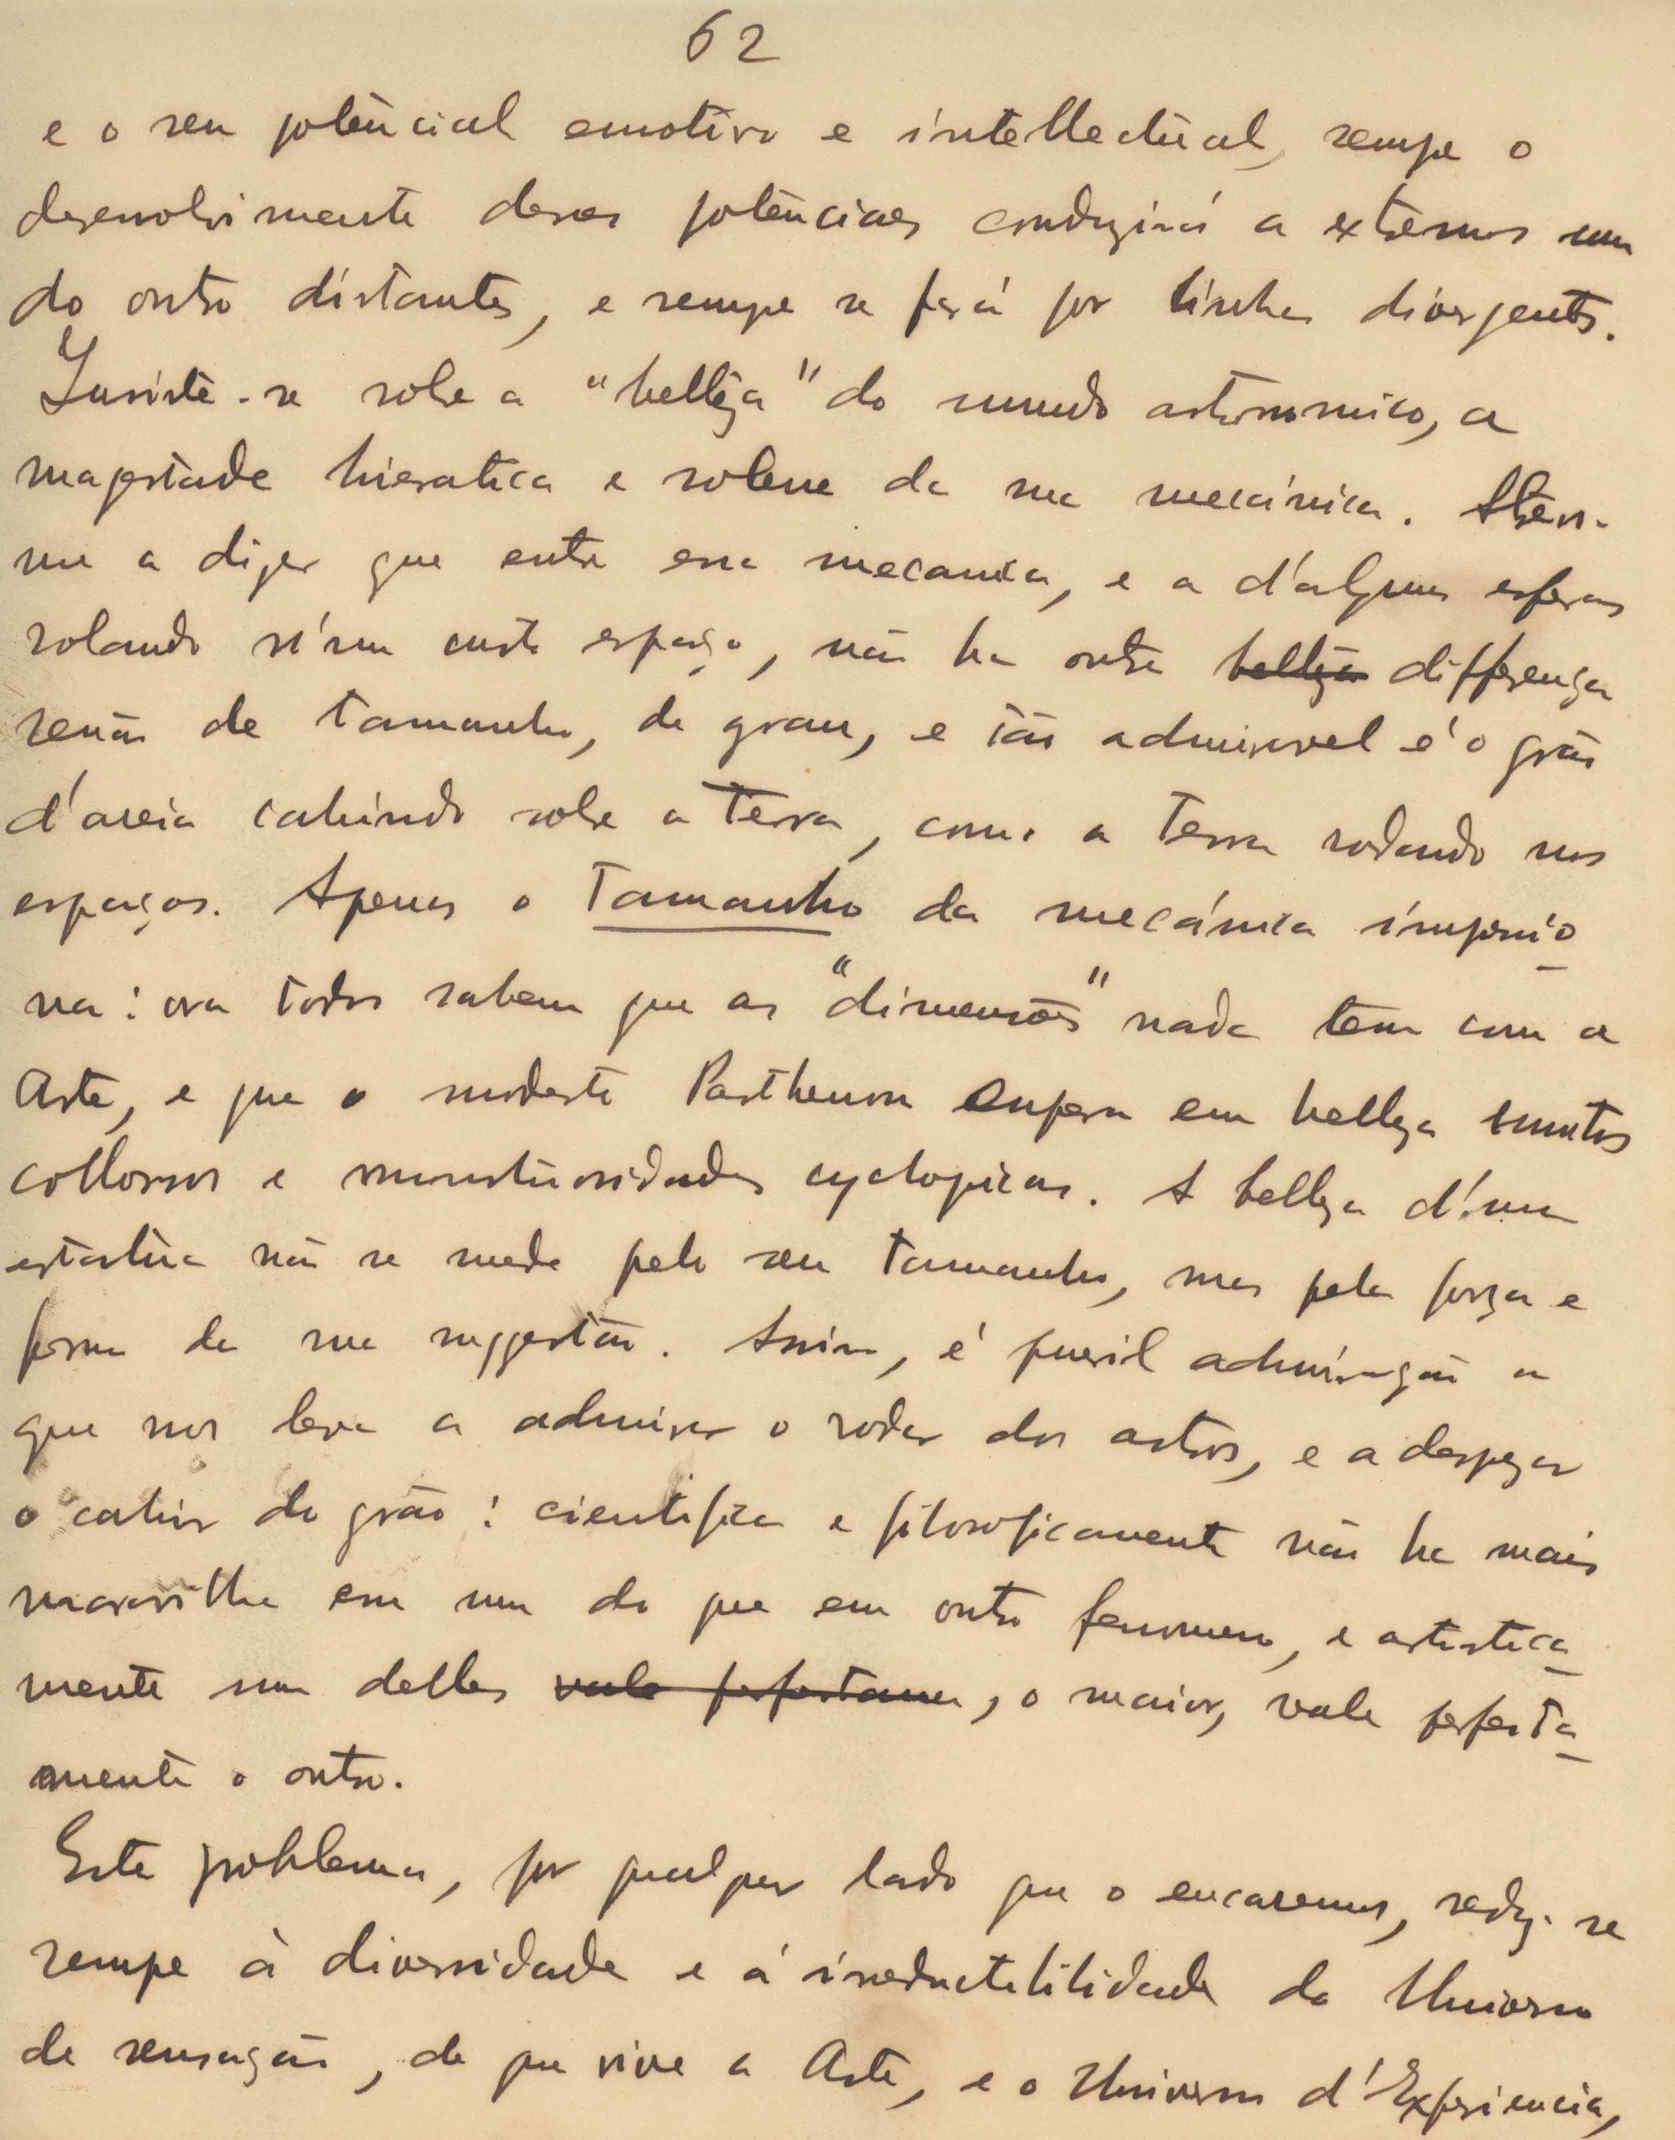 62
e o seu potencial emotivo e intellectual, sempre o
desenvolvimento desses potenciaes conduzirá a extremos um
do outro distantes, e sempre se fará por linhas divergentes.
Insiste-se sobre a "belleza" do mundo astronomico, a
magestade hieratica e solene da sua mecánica. Atrevo-
me a dizer que entre essa mecanica, e a d'algumas esferas
rolando n'um curto espaço, não ha outra belleza differença
senão de tamanho, de grau, e tão admiravel é o grão
d'areia cahindo sobre a Terra, como a Terra rodando nos
espaços. Apenas o Tamanho da mecánica impressio
na: ora todos sabem que as "dimensões" nada tem com a
Arte, e que o modesto Parthenon supera em belleza muitos
collossos e monstruosidades cyclopicas. A belleza d'uma
estatua não se mede pelo seu tamanho, mas pela força e
forma da sua suggestão. Assim, é pueril admiração a
que nos leva a admirar o rodar dos astros, e a desprezar
o cahir do grão: cientifica e filosoficamente não ha mais
maravilha em um do que em outro fenomeno, e artistica
mente um delles vale perfeitamen, o maior, vale perfeita
mente o outro.
Este problema, por qualquer lado que o encaremos, reduz-se
sempre à diversidade e á irreductibilidade do Universo
de sensação, de que vive a Arte, e o Universo d'Experiencia,